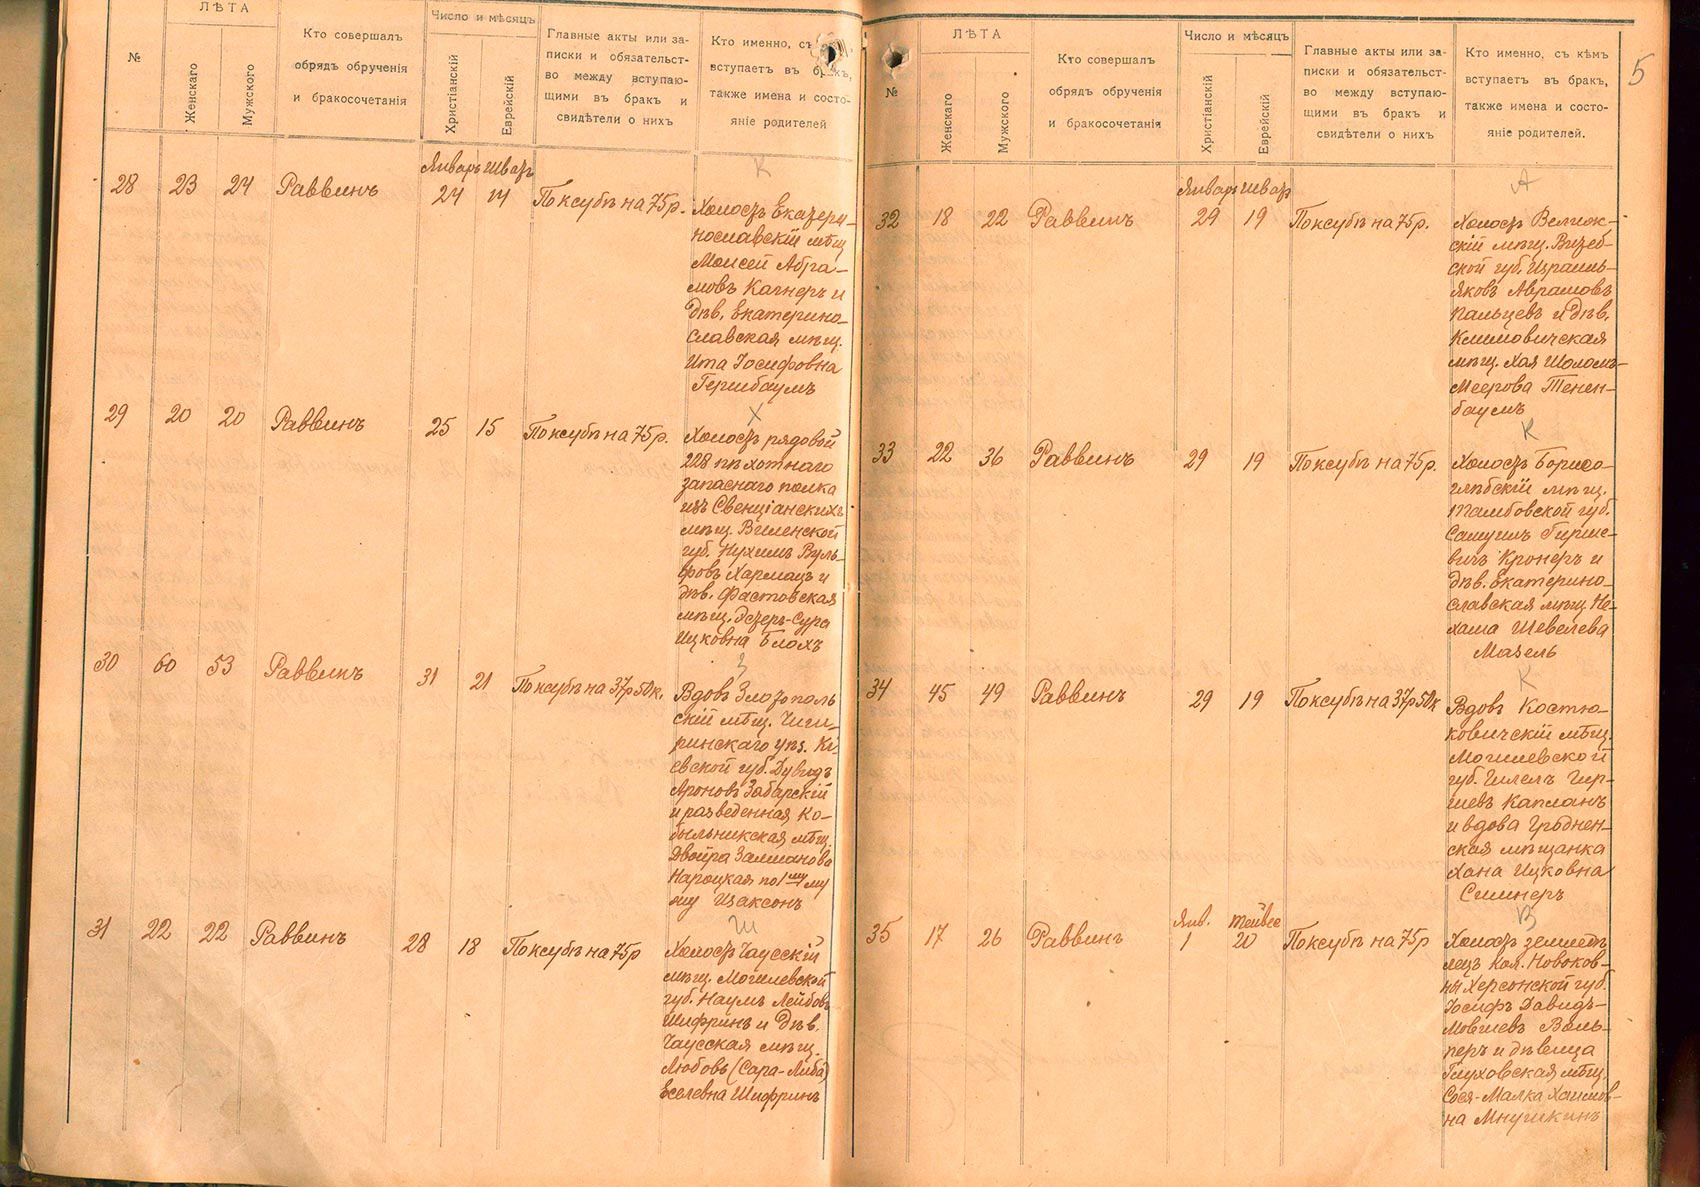 №
ЛѢТА
Женскаго
Мужского
Кто совершалъ
обрядъ обрученія
и бракосочетанія
Число и мѣсяцъ
Христіанскій
Еврейскій
Главные акты или за-
писки и обязательст-
во между вступаю-
щими въ бракъ и
свидѣтели о нихъ
Кто именно, съ
вступаетъ въ бракъ,
также имена и состо-
яніе родителей
К
Январь Шватъ
28 23 24 Раввинъ 24 14 По ксубѣ на 75 р.
Холостъ Екатери-
нославскій мѣщ.
Моисей Абра-
мовъ Кагнеръ и
дѣв. Екатерино-
славская мѣщ.
Ита Іосифовна
Гершбаумъ
Х
29 20 20 Раввинъ 25 15 По ксубѣ на 75 р.
Холостъ рядовой
228 пѣхотнаго
запаснаго полка
изъ Свенціанскихъ
мѣщ. Виленской
губ. Нухимъ Вуль-
фовъ Хармацъ и
дѣв. Фастовская
мѣщ. Эстеръ-Сура
Ицковна Блохъ
З
30 60 53 Раввинъ 31 21 По ксубѣ на 37р 50к.
Вдовъ Златополь
скій мѣщ. Чиги-
ринскаго уѣз. Кі-
евской губ. Дувидъ
Ароновъ Забарскій
и разведенная Ко-
быльникская мѣщ.
Двойра Залманова
Нароцкая по 1му му
жу Исаксонъ
Ш
31 22 22 Раввинъ 28 18 По ксубѣ на 75р
Холостъ Чаусскій
мѣщ. Могилевской
губ. Наумъ Лейбовъ
Шифринъ и дѣв.
Чаусская мѣщ.
Любовь (Сара-Либа)
Еселевна Шифринъ
5
№
ЛѢТА
Женскаго
Мужского
Кто совершалъ
обрядъ обрученія
и бракосочетанія
Число и мѣсяцъ
Христіанскій
Еврейскій
Главные акты или за-
писки и обязательст-
во между вступаю-
щими въ бракъ и
свидѣтели о нихъ
Кто именно, съ кѣмъ
вступаетъ въ бракъ,
также имена и состо-
яніе родителей.
Январь Шватъ
32 18 22 Раввинъ 29 19 По ксубѣ на 75 р.
Холостъ Велиж-
скій мѣщ. Витеб-
ской губ. Израиль-
Яковъ Аврамовъ
Пальцевъ и дѣв.
Климовичская
мѣщ. Хая Шоломъ-
Меерова Тенен-
баумъ
К
33 22 36 Раввинъ 29 19 По ксубѣ на 75р.
Холостъ Борисо-
глѣбскій мѣщ.
Тамбовской губ.
Самуилъ Гирше-
вичъ Кронеръ и
дѣв. Екатерино-
славская мѣщ. Не-
хама Шевелева
Мазель
К
34 45 49 Раввинъ 29 19 По ксубѣ на 37р 50к
Вдовъ Костю-
ковичскій мѣщ.
Могилевской
губ. Гилелъ Гир-
шевъ Капланъ
и вдова Гроднен-
ская мѣщанка
Хана Ицковна
В
Янв. Тейвес
35 17 26 Раввинъ 1 20 По ксубѣ на 75р
Холостъ землед
лецъ кол. Новоков-
ны Херсонской губ.
Іосифъ Давидъ-
Мовшевъ Валь-
перъ и дѣвица
Глуховская мѣщ.
Сося-Малка Хаимов-
на Мнушкинъ